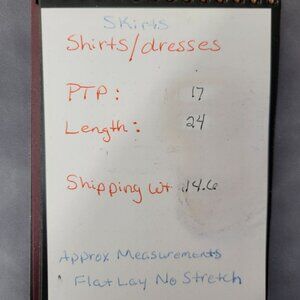 Skirts
Shirts/dresses
PTP: 17
Length: 24
Shipping wt 14.6
Approx Measurements
Flat Lay No Stretch